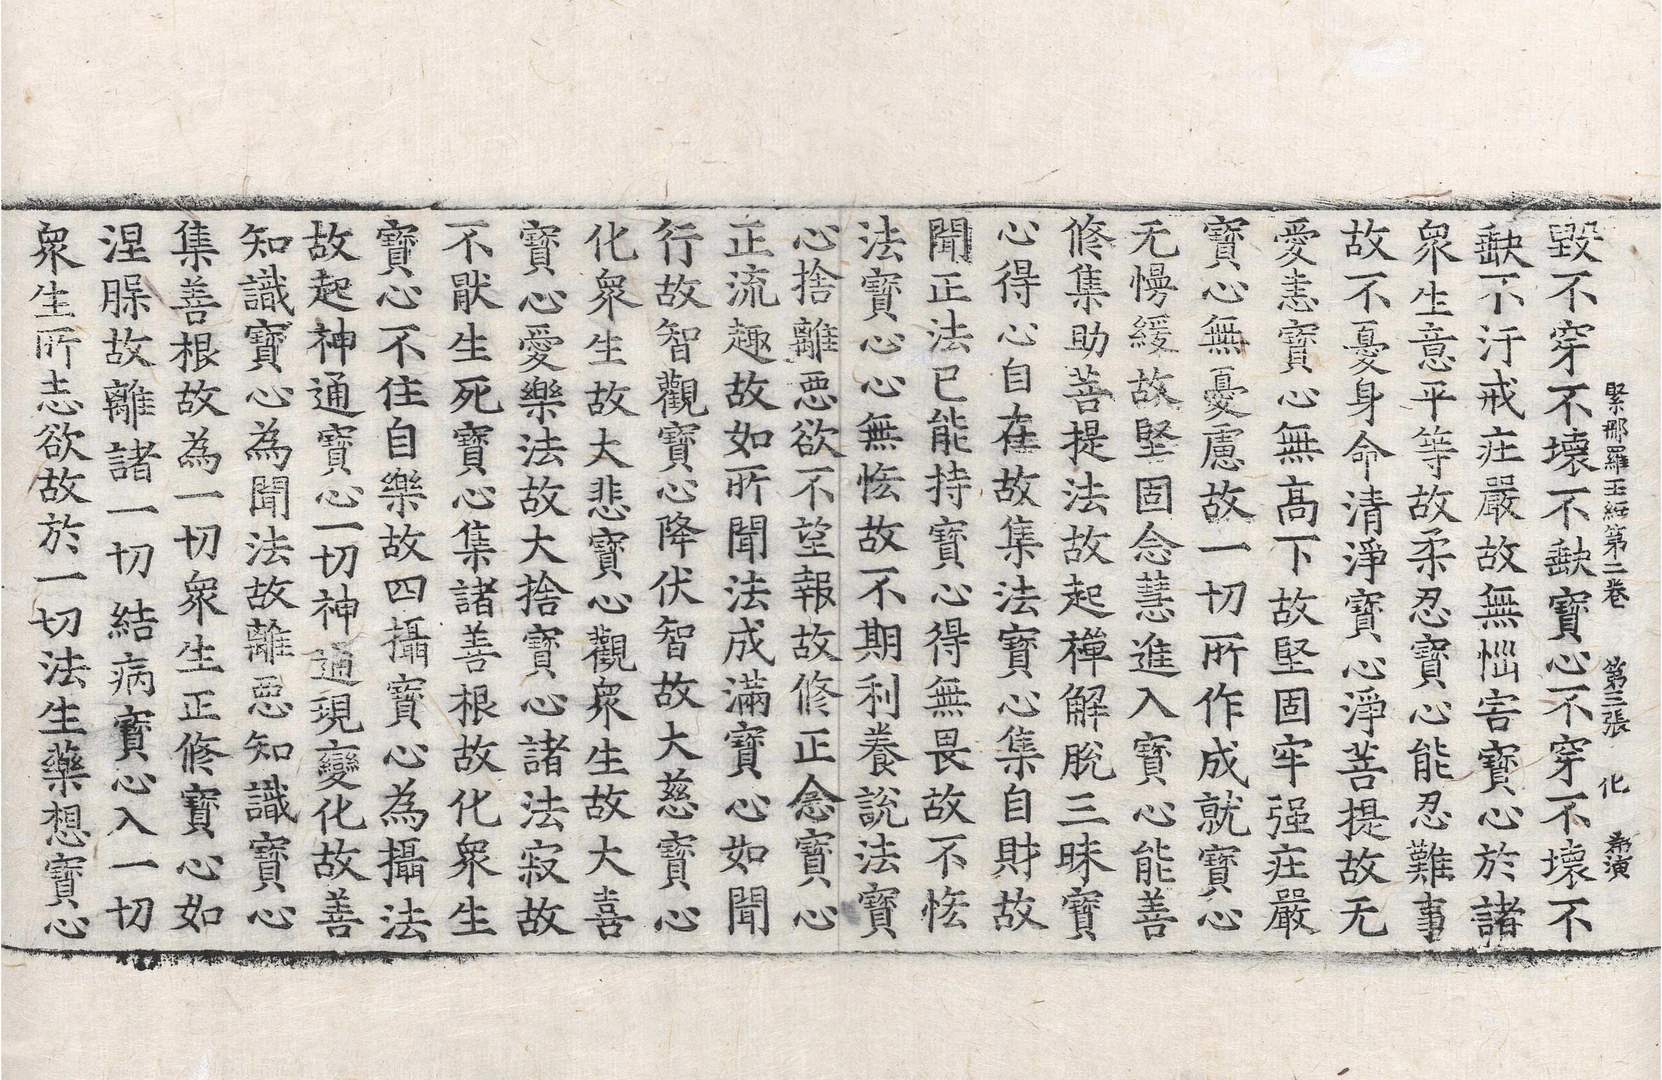 緊那羅王經第二卷 第三張 化 秉演
毀不穿不壞不𡙇寶心不穿不壞不
𡙇不汙戒庄嚴故無惱害寶心於諸
衆生意平等故柔忍寶心能忍難事
故不憂身命清淨寶心淨菩提故无
愛恚寶心無高下故堅固牢强庄嚴
寶心無憂慮故一切所作成就寶心
无慢緩故堅固念慧進入寶心能善
修集助菩提法故起禪解脫三昧寶
心得心自在故集法寶心集自財故
聞正法已能持寶心得無畏故不恡
法寶心心無恡故不期利養說法寶
心捨離惡欲不望報故修正念寶心
正流趣故如所聞法成滿寶心如聞
行故智觀寶心降伏智故大慈寶心
化衆生故大悲寶心觀衆生故大喜
寶心愛樂法故大捨寶心諸法寂故
不猒生死寶心集諸善根故化衆生
寶心不住自樂故四攝寶心為攝法
故起神通寶心一切神通現變化故善
知識寶心為聞法故離惡知識寶心
集善根故為一切衆生正修寶心如
涅槃故離諸一切結病寶心入一切
衆生所志欲故於一切法生藥想寶心